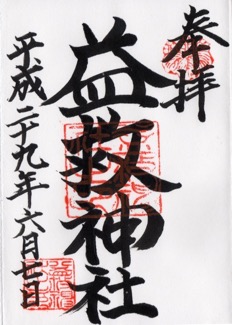 奉拝
益救神社
平成二十九年六月廿日